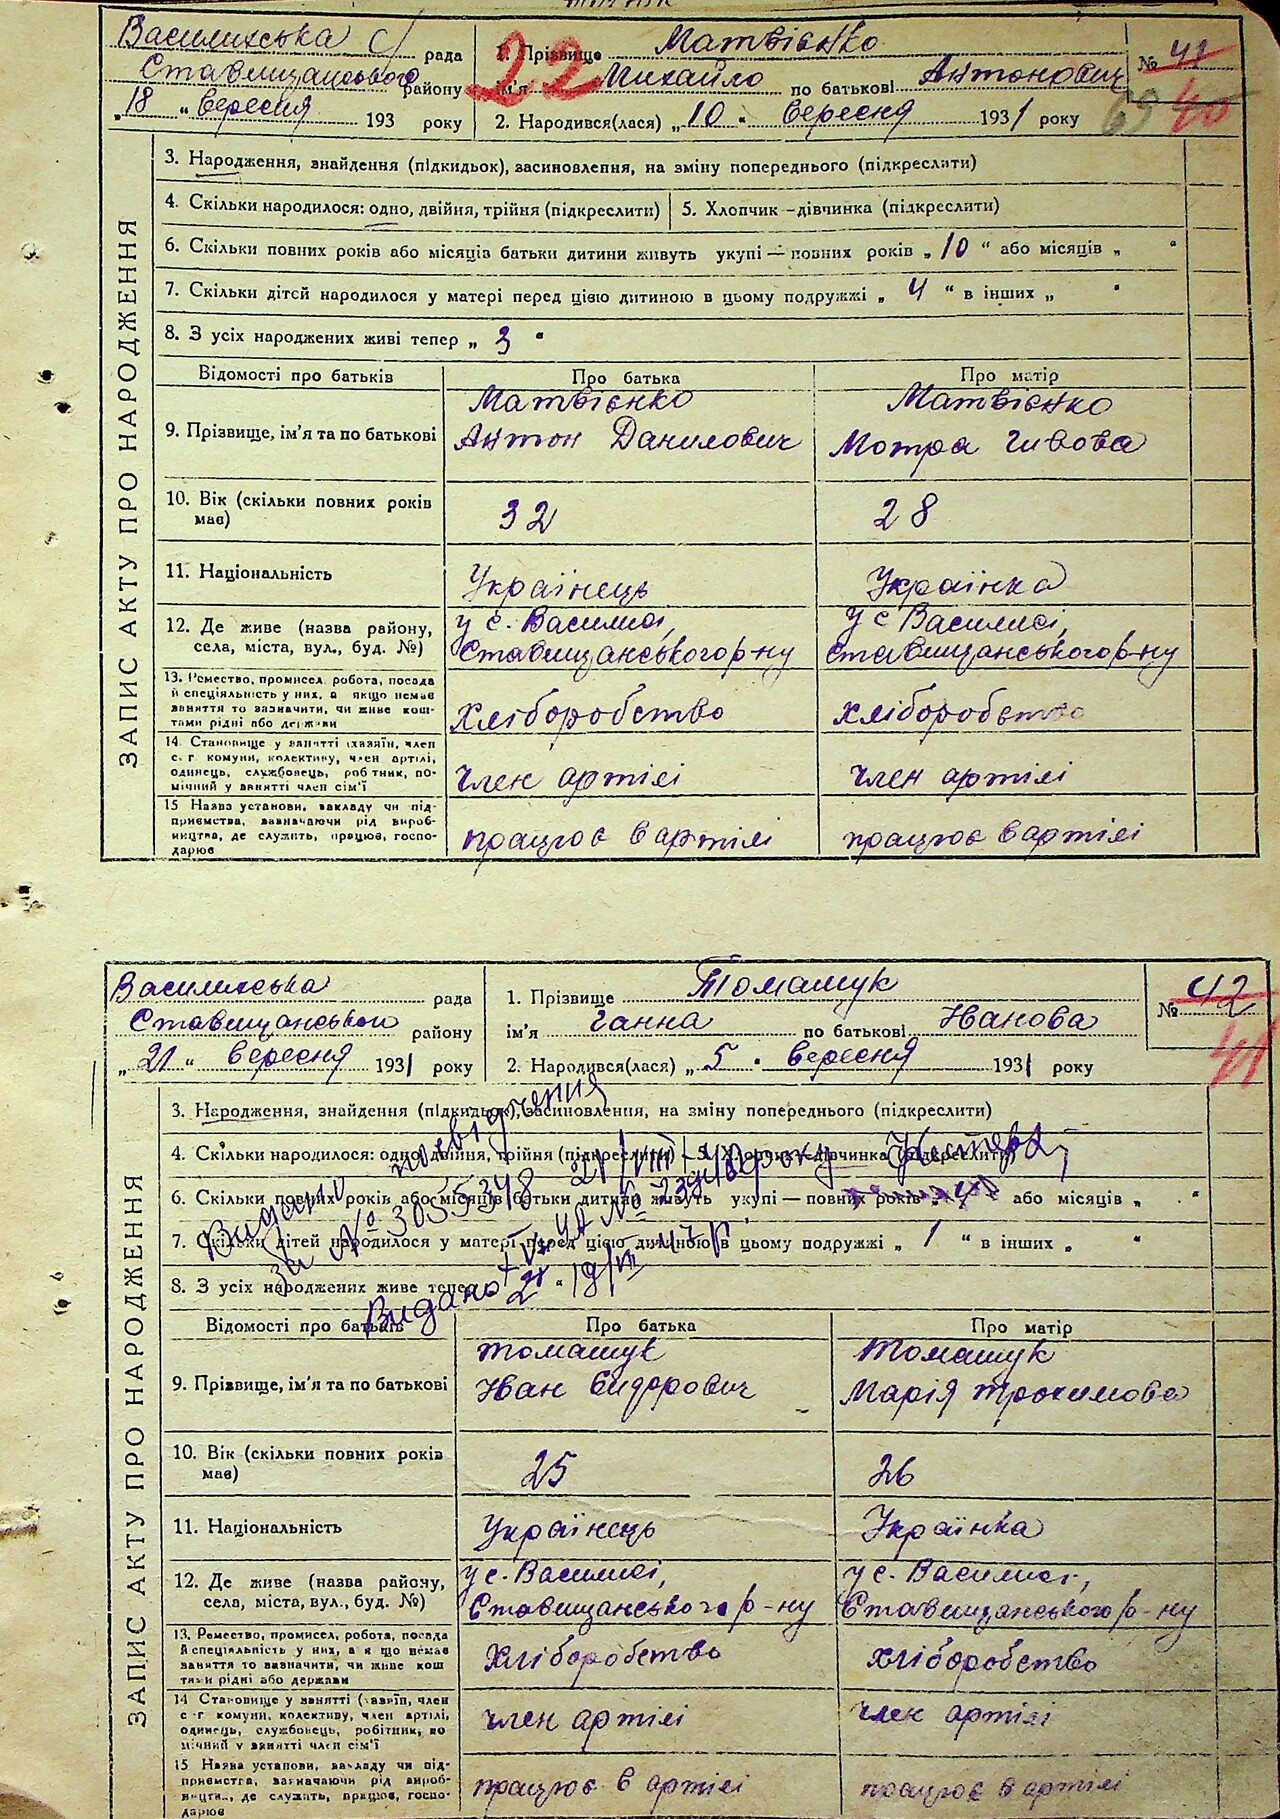 Василихська с/ рада
Ставищанського району
„18 „ вересня 193 року
22
1. Прізвище Матвієнко
ім'я Михайло по батькові Антонович
2. Народився(лася) „10 „ вересня 1931 року
№ 41
69 40
ЗАПИС АКТУ ПРО НАРОДЖЕННЯ
3. Народження, знайдення (підкидьок), засиновлення, на зміну попереднього (підкреслити)
4. Скільки народилося: одно, двійня, трійня (підкреслити) 5. Хлопчик – дівчинка (підкреслити)
6. Скільки повних років або місяців батьки дитини живуть укупі — повних років „ 10 “ або місяців „ “
7. Скільки дітей народилося у матері перед цією дитиною в цьому подружжі „ 4 “ в інших „ “
8. З усіх народжених живі тепер „ 3 “
Відомості про батьків Про батька Про матір
9. Прізвище, ім'я та по батькові
Матвієнко Антон Данилович
Матвієнко Мотра
10. Вік (скільки повних років має)
32 28
11. Національність Українець Українка
12. Де живе (назва району, села, міста, вул., буд. №)
у с. Василисі, Ставищанського р-ну
у с Василисі, Ставищанського р-ну
13. Ремество, промисел, робота, посада й спеціяльність у них, а якщо немає заняття то зазначити, чи живе коштами рідні або держави
хліборобство хліборобство
14. Становище у занятті (хазяїн, член с.-г комуни, колективу, член артілі, одинець, службовець, робітник, помічний у занятті член сім'ї
член артілі член артілі
15 Назва установи, закладу чи підприємства, зазначаючи рід виробництва, де служить, працює, господарює
працює в артілі працює в артілі
Василихська рада
Ставищанського району
„ 21 “ вересня 1931 року
1. Прізвище Томашук
ім'я Ганна по батькові Іванова
2. Народився(лася) „ 5 „ вересня 1931 року
№ 42
41
ЗАПИС АКТУ ПРО НАРОДЖЕННЯ
3. Народження, знайдення (підкидьок), засиновлення, на зміну попереднього (підкреслити)
4. Скільки народилося: одно, двійня, трійня (підкреслити) 5. Хлопчик – дівчинка (підкреслити)
6. Скільки повних років або місяців батьки дитини живуть укупі — повних років „ “ або місяців „ “
7. Скільки дітей народилося у матері перед цією дитиною в цьому подружжі „ 1 “ в інших „ “
8. З усіх народжених живе тепер
Видано посвідчення
за № 3055348 21/VIII
Видано 19/III 47 р.
Відомості про батьків Про батька Про матір
9. Прізвище, ім'я та по батькові
Томашук Іван Сидорович
Томашук Марія Трохимова
10. Вік (скільки повних років має)
25 26
11. Національність Українець Українка
12. Де живе (назва району, села, міста, вул., буд. №)
у с. Василисі, Ставищанського р-ну
у с. Василисі, Ставищанського р-ну
13. Ремество, промисел, робота, посада й спеціяльність у них, а якщо немає заняття то зазначити, чи живе коштами рідні або держави
хліборобство хліборобство
14 Становище у занятті (хазяїн, член с-г комуни, колективу, член артілі, одинець, службовець, робітник, помічний у занятті член сім'ї
член артілі член артілі
15 Назва установи, закладу чи підприємства, зазначаючи рід виробництва, де служить, працює, господарює
працює в артілі працює в артілі